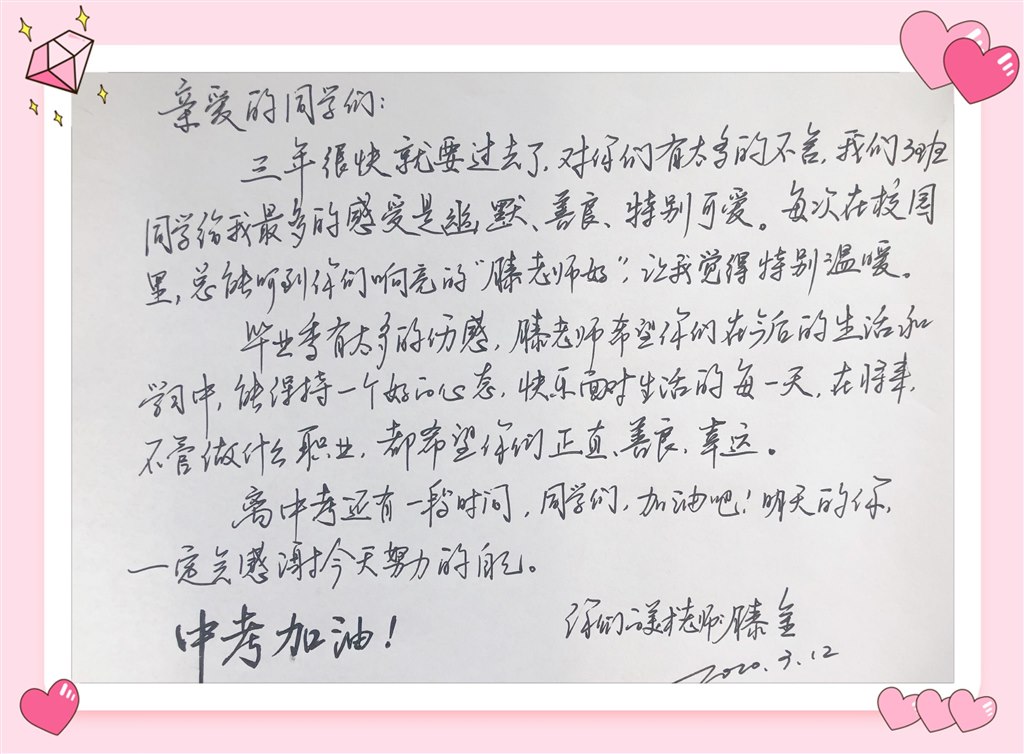 亲爱的同学们：
三年很快就要过去了，对你们有太多的不舍，我们3班
同学给我最多的感受是幽默、善良、特别可爱。每次在校园
里，总能听到你们响亮的“滕老师好”，让我觉得特别温暖。
毕业季有太多的伤感，滕老师希望你们在今后的生活和
学习中，能保持一个好的心态，快乐面对生活的每一天，在将来，
不管做什么职业，都希望你们正直、善良、幸运。
离中考还有一段时间，同学们，加油吧！明天的你，
一定会感谢今天努力的自己。
中考加油！
你们的美术老师：滕金
2020.3.12